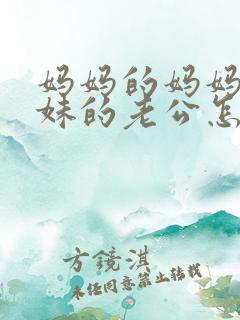 妈妈的妈妈
妹的老公怎
方镜淇
未经同意禁止转载